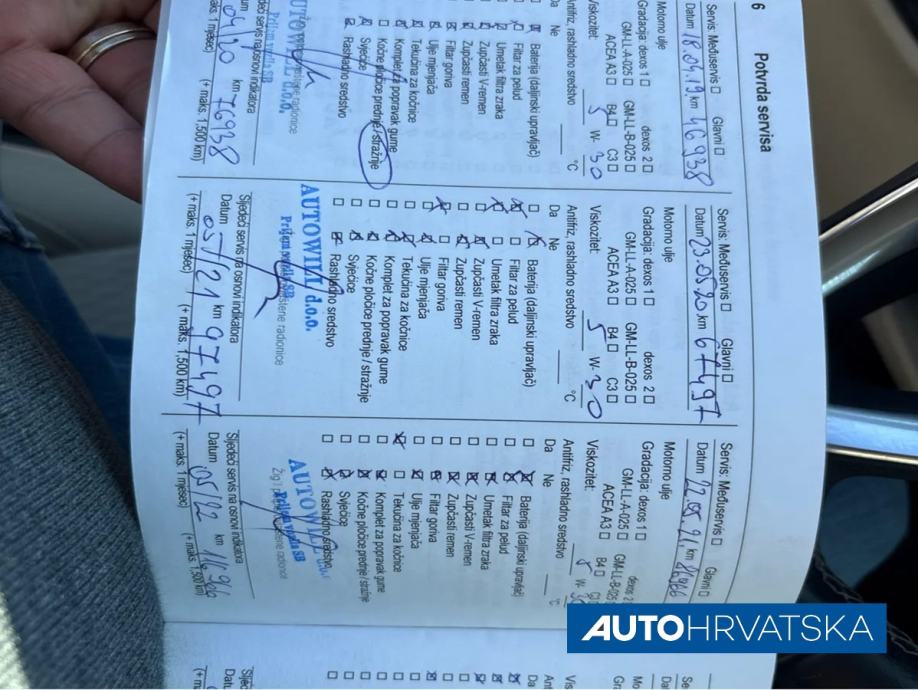 6
Potvrda servisa
Servis: Međuservis ☐ Glavni ☐
Datum 18.04.19. km 46938
Motorno ulje
Gradacija: dexos 1 ☐ dexos 2 ☐
GM-LL-A-025 ☐ GM-LL-B-025 ☐
ACEA A3 ☐ B4 ☐ C3 ☐
Viskozitet: 5 W- 30
Antifriz, rashladno sredstvo °C
Da Ne
Baterija (daljinski upravljač)
Filtar za pelud
Umetak filtra zraka
Zupčasti V-remen
Zupčasti remen
Filtar goriva
Ulje mjenjača
Tekućina za kočnice
Komplet za popravak gume
Kočne pločice prednje / stražnje
Svječice
Rashladno sredstvo
AUTOWILL d.o.o.
km 76938
(+ maks. 1 mjesec) (+ maks. 1,500 km)
Servis: Međuservis ☐ Glavni ☐
Datum 23.05.20 km 67497
Motorno ulje
Gradacija: dexos 1 ☐ dexos 2 ☐
GM-LL-A-025 ☐ GM-LL-B-025 ☐
ACEA A3 ☐ B4 ☐ C3 ☐
Viskozitet: 5 W- 30
Antifriz, rashladno sredstvo °C
Da Ne
Baterija (daljinski upravljač)
Filtar za pelud
Umetak filtra zraka
Zupčasti V-remen
Zupčasti remen
Filtar goriva
Ulje mjenjača
Tekućina za kočnice
Komplet za popravak gume
Kočne pločice prednje / stražnje
Svječice
Rashladno sredstvo
AUTOWILL d.o.o.
radionice
Sljedeći servis na osnovi indikatora
Datum 05/21 km 97497
(+ maks. 1 mjesec) (+ maks. 1,500 km)
Servis: Međuservis ☐ Glavni ☐
Datum 22.05.21. km 86966
Motorno ulje
Gradacija: dexos 1 ☐ dexos 2
GM-LL-A-025 ☐ GM-LL-B-025
ACEA A3 ☐ B4 ☐
Viskozitet: 5 W-
Antifriz, rashladno sredstvo °C
Da Ne
Baterija (daljinski upravljač)
Filtar za pelud
Umetak filtra zraka
Zupčasti V-remen
Zupčasti remen
Filtar goriva
Ulje mjenjača
Tekućina za kočnice
Komplet za popravak gume
Kočne pločice prednje / stražnje
Svječice
Rashladno sredstvo
radionice
Sljedeći servis na osnovi indikatora
Datum 05/22 km 116966
(+ maks. 1 mjesec) (+ maks. 1,500 km)
AUTOHRVATSKA